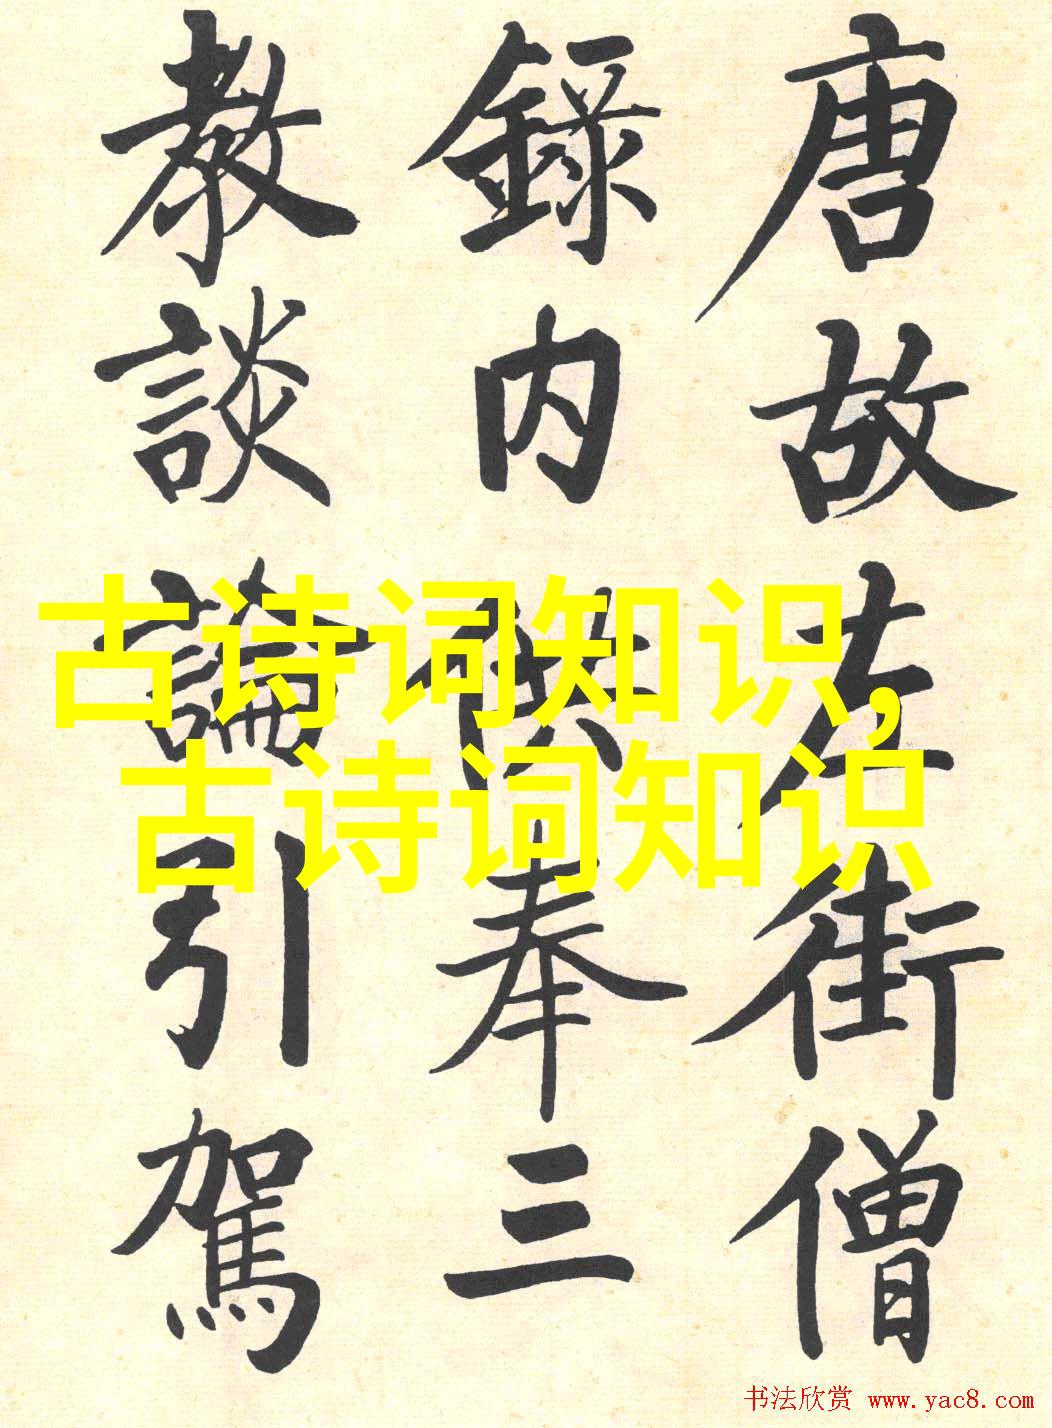 唐故左街僧
錄内供奉三
教談論引駕
古诗词知识,
古诗词知识
书法欣赏 www.yac8.com